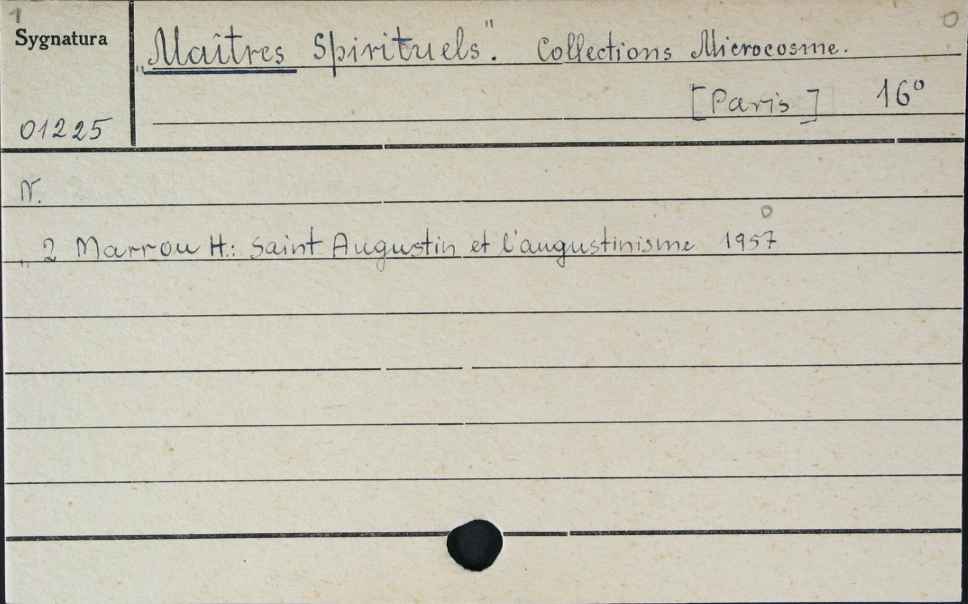 1
Sygnatura
„Maîtres Spirituels". Collections Microcosme.
[Paris] 16°
01225
N.
2 Marrou H.: Saint Augustin et l'augustinisme 1957